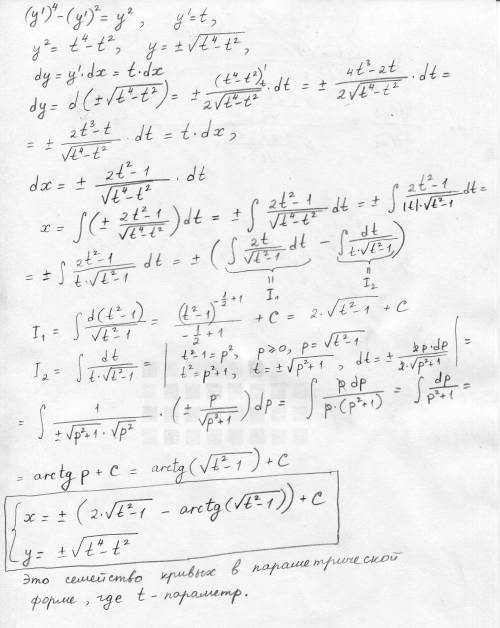 (y')⁴-(y')²=y², y'=t,
y²=t⁴-t², y=±√(t⁴-t²),
dy=y'·dx=t·dx
dy=d(±√(t⁴-t²))=±(t⁴-t²)'ₜ/(2√(t⁴-t²))·dt=±(4t³-2t)/(2√(t⁴-t²))·dt=
=±(2t³-t)/√(t⁴-t²)·dt=t·dx,
dx=±(2t²-1)/√(t⁴-t²)·dt
x=∫(±(2t²-1)/√(t⁴-t²))dt=±∫(2t²-1)/√(t⁴-t²)dt=±∫(2t²-1)/(|t|·√(t²-1))dt=
=±∫(2t²-1)/(t·√(t²-1))dt=±(∫2t/√(t²-1)dt-∫dt/(t·√(t²-1)))
= I₁ = I₂
I₁=∫d(t²-1)/√(t²-1)=(t²-1)^(-1/2+1)/(-1/2+1)+C=2·√(t²-1)+C
I₂=∫dt/(t·√(t²-1))=|t²-1=p², p≥0, p=√(t²-1) t²=p²+1, t=±√(p²+1), dt=±2p·dp/(2·√(p²+1))|=
=∫1/(±√(p²+1)·√p²)·(±p/√(p²+1))dp=∫p dp/(p·(p²+1))=∫dp/(p²+1)=
=arctg p+C=arctg(√(t²-1))+C
{x=±(2·√(t²-1)-arctg(√(t²-1)))+C
y=±√(t⁴-t²)
Это семейство кривых в параметрической
форме, где t-параметр.